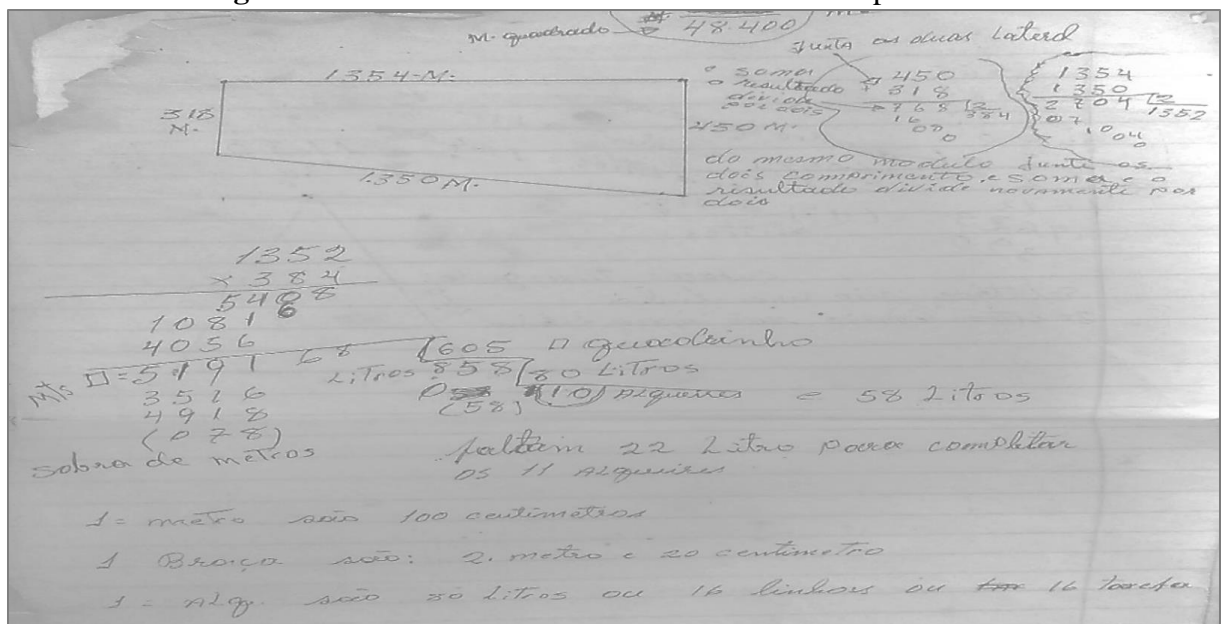 M. quadrado 48.400
Junta as duas Lateral
1354-M.
318
M.
450 M.
1350 M.
e somar
o resultado
divide
por dois
450
318
768 2
16 384
00
0
1354
1350
2704 2
07 1352
10
04
0
do mesmo modulo Junte os
dois comprimento e soma e o
risultado divide novamente por
dois
1352
x 384
5408
10816
4056
M/s □=519168 605 □ quadrinho
3516 Litros 858 80 Litros
4918 (58) 10 Alqueires e 58 Litros
(078)
sobra de metros
faltam 22 Litro para completar
os 11 Alqueires
1 = metro são 100 centimetros
1 Braça são: 2. metro e 20 centimetro
1 = Alq. são 80 Litros ou 16 linhas ou 16 tarefa